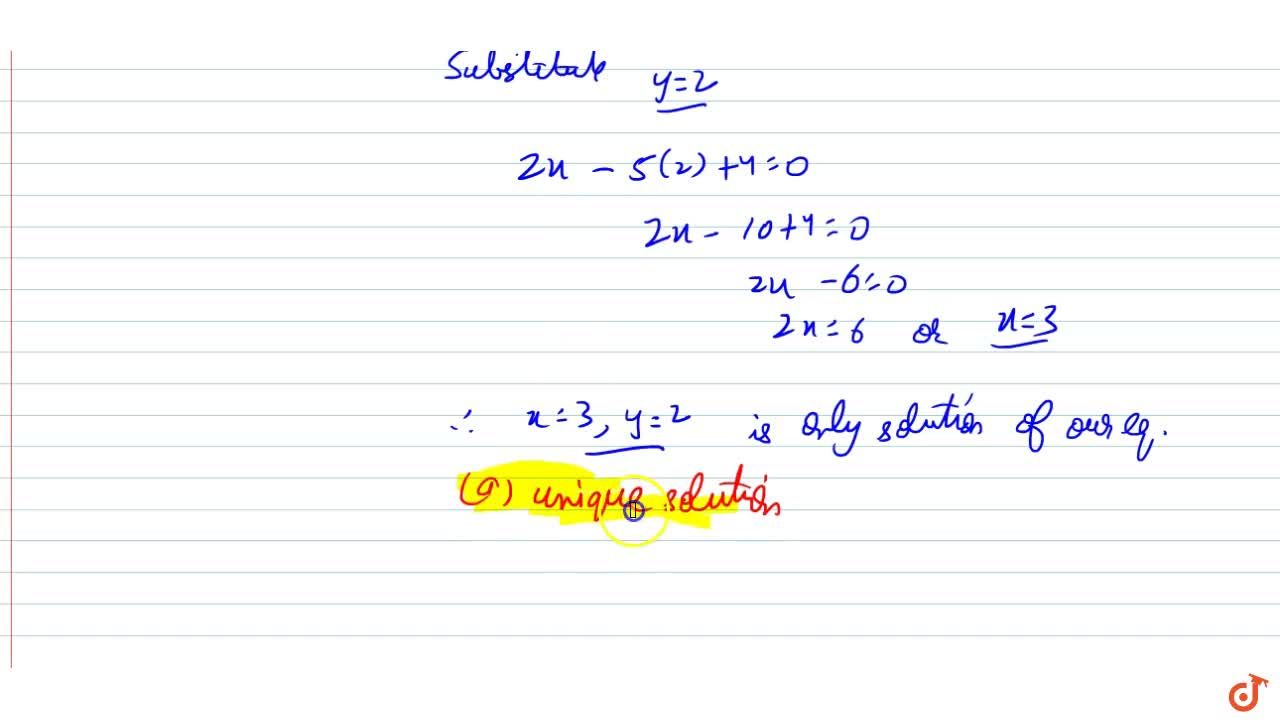 Substitute y=2
2x - 5(2) +4=0
2x - 10+4=0
2x -6=0
2x=6 or x=3
∴ x=3, y=2 is only solution of our eq.
(a) unique solution